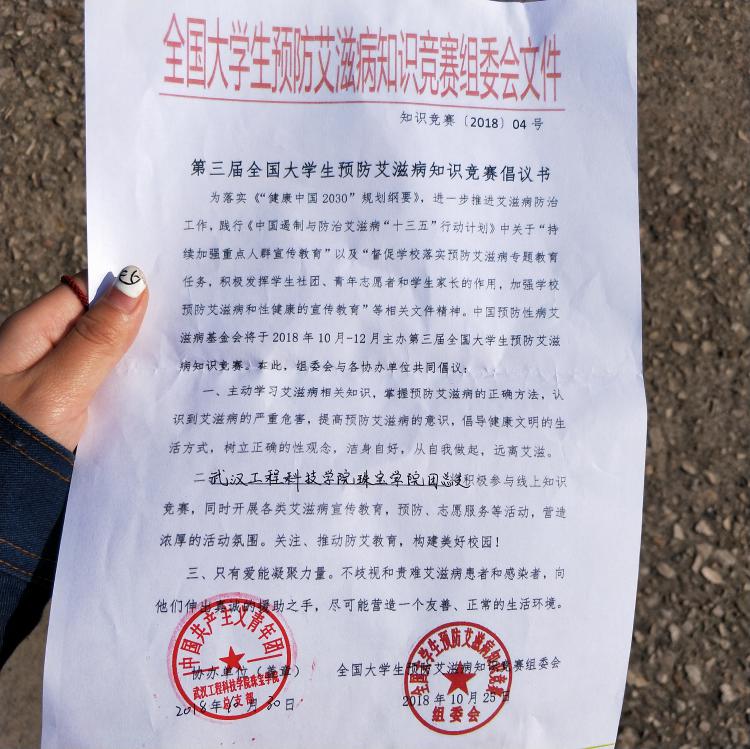 全国大学生预防艾滋病知识竞赛组委会文件
知识竞赛〔2018〕04 号
第三届全国大学生预防艾滋病知识竞赛倡议书
为落实《“健康中国 2030”规划纲要》，进一步推进艾滋病防治
工作，践行《中国遏制与防治艾滋病“十三五”行动计划》中关于“持
续加强重点人群宣传教育”以及“督促学校落实预防艾滋病专题教育
任务，积极发挥学生社团、青年志愿者和学生家长的作用，加强学校
预防艾滋病和性健康的宣传教育”等相关文件精神。中国预防性病艾
滋病基金会将于 2018 年 10 月-12 月主办第三届全国大学生预防艾滋
病知识竞赛。在此，组委会与各协办单位共同倡议：
一、主动学习艾滋病相关知识，掌握预防艾滋病的正确方法，认
识到艾滋病的严重危害，提高预防艾滋病的意识，倡导健康文明的生
活方式，树立正确的性观念，洁身自好，从自我做起，远离艾滋。
二武汉工程科技学院珠宝学院团总支积极参与线上知识
竞赛，同时开展各类艾滋病宣传教育，预防、志愿服务等活动，营造
浓厚的活动氛围。关注、推动防艾教育，构建美好校园！
三、只有爱能凝聚力量。不歧视和责难艾滋病患者和感染者，向
他们伸出真诚的援助之手，尽可能营造一个友善、正常的生活环境。
中国共产主义青年团
武汉工程科技学院珠宝学院
总支部
协办单位（盖章）
2018 年 10 月 30 日
全国大学生预防艾滋病知识竞赛组委会
2018 年 10 月 25 日
全国大学生预防艾滋病知识竞赛
组委会